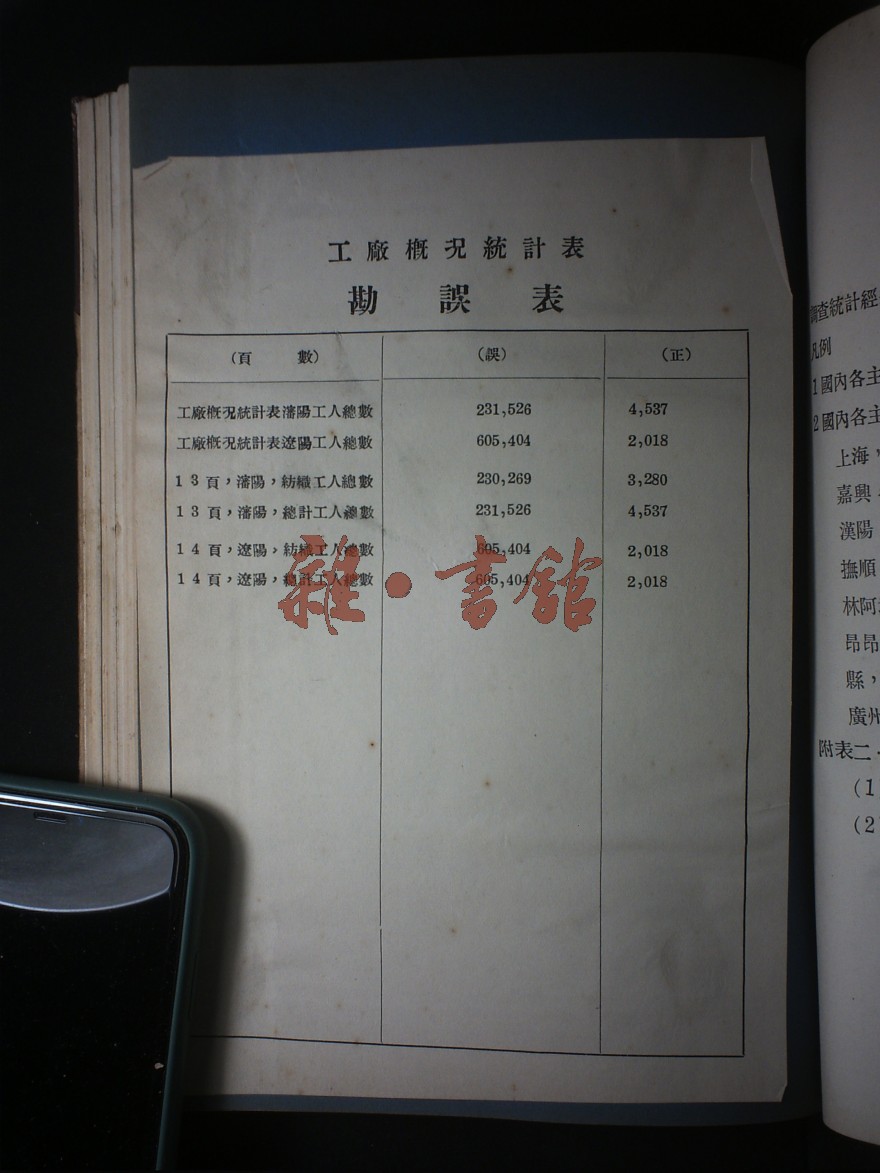 工廠概況統計表
勘誤表
(頁 數) (誤) (正)
工廠概況統計表瀋陽工人總數 231,526 4,537
工廠概況統計表遼陽工人總數 605,404 2,018
13頁,瀋陽,紡織工人總數 230,269 3,280
13頁,瀋陽,總計工人總數 231,526 4,537
14頁,遼陽,紡織工人總數 605,404 2,018
14頁,遼陽,總計工人總數 605,404 2,018
雜·書館
調查統計經
凡例
1國內各主
2國內各主
上海,
嘉興
漢陽
撫順
林阿
昂昂
縣,
廣州
附表二
(1
(2